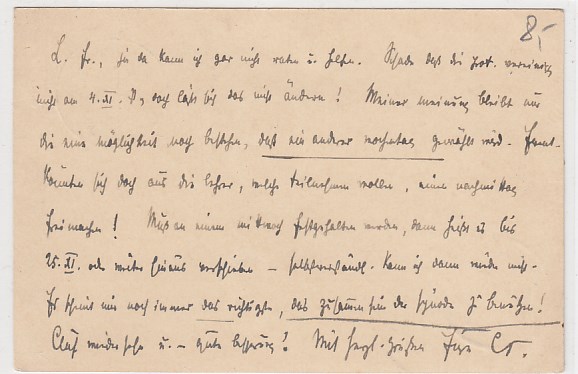 8,-
L. Fr., ja da kann ich gar nicht raten u. helfen. Schade daß die
nicht am 4. XI. , doch läßt sich das nicht ändern! Meiner meinung bleibt nur
die eine möglichkeit noch bestehen, daß ein anderer wochentag gewählt wird.
könnten sich doch auch die lehrer, welche teilnehmen wollen, einen nachmittag
freimachen! Muß an einem mittwoch festgehalten werden, dann heißt es bis
25. XI. oder weiter hinaus verschieben – selbstverständl. kann ich dann wieder nicht.
Es scheint mir noch immer das richtigste, das zusammensein der synode zu benützen!
wiedersehn u. – gute besserung! Mit herzl. Grüßen Ihr